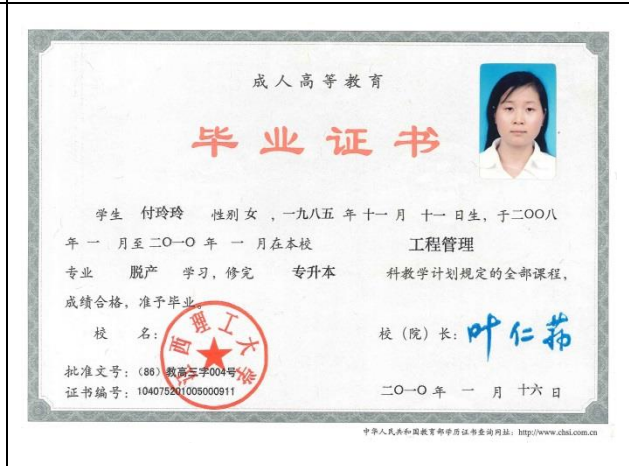 成人高等教育
毕业证书
学生 付玲玲 性别 女 ，一九八五 年 十一 月 十一 日生，于二〇〇八
年 一 月至 二〇一〇 年 一 月在本校 工程管理
专业 脱产 学习，修完 专升本 科教学计划规定的全部课程，
成绩合格，准予毕业。
校 名：
江西理工大学
校（院）长：叶仁荪
批准文号：(86) 教高三字004号
证书编号：104075201005000911
二〇一〇 年 一 月 十六 日
中华人民共和国教育部学历证书查询网址：http://www.chsi.com.cn